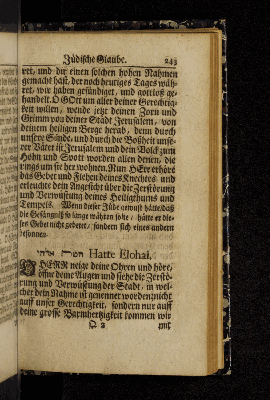 Jüdische Glaube. 243
ret, und dir einen solchen hohen Nahmen
gemacht hast, der noch heutiges Tages wäh-
ret, wir haben gesündiget, und gottloß ge-
handelt. O GOtt um aller deiner Gerechtig-
keit willen, wende jetzt deinen Zorn und
Grimm von deiner Stadt Jerusalem, von
deinem heiligen Berge herab, denn durch
unsere Sünde, und durch die Boßheit unse-
rer Väter ist Jerusalem und dein Volck zum
Hohn und Spott worden allen denen, die
rings um sie her wohnen. Nun HErr erhöre
das Gebet und Flehen deines Knechtes und
erleuchte dein Angesicht über die Zerstörung
und Verwüstung deines Heiligthums und
Tempels. Wenn dieser Jüde gewust hätte, daß
die Gefängniß so lange währen solte, hätte er die-
ses Gebet nicht gebetet, sondern sich eines andern
besonnen.
הטה אלהי Hatte Elohai.
O HERR neige deine Ohren und höre,
öffne deine Augen und siehe die Zerstö-
rung und Verwüstung der Stadt, in wel-
cher dein Nahme ist genennet worden, nicht
auff unser Gerechtigkeit, sondern nur auff
deine grosse Barmhertzigkeit kommen wir
Q 2 mit